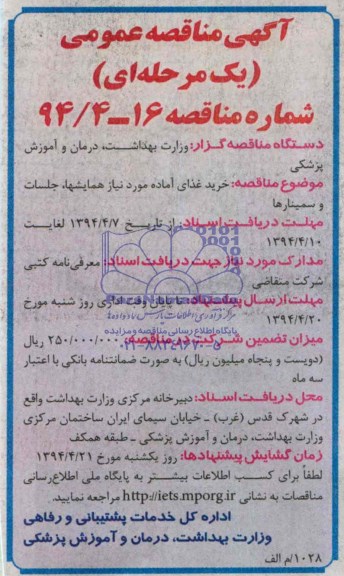 آگهی مناقصه عمومی
(یک مرحله‌ای)
شماره مناقصه ۱۶-۹۴/۴
دستگاه مناقصه گزار: وزارت بهداشت، درمان و آموزش
پزشکی
موضوع مناقصه: خرید غذای آماده مورد نیاز همایشها، جلسات
و سمینارها
مهلت دریافت اسناد: از تاریخ ۱۳۹۴/۴/۷ لغایت
۱۳۹۴/۴/۱۰
مدارک مورد نیاز جهت دریافت اسناد: معرفی‌نامه کتبی
شرکت متقاضی
مهلت ارسال پیشنهاد: تا پایان وقت اداری روز شنبه مورخ
۱۳۹۴/۴/۲۰
میزان تضمین شرکت در مناقصه: ۲۵۰/۰۰۰/۰۰۰ ریال
(دویست و پنجاه میلیون ریال) به صورت ضمانتنامه بانکی با اعتبار
سه ماه
محل دریافت اسناد: دبیرخانه مرکزی وزارت بهداشت واقع
در شهرک قدس (غرب) ـ خیابان سیمای ایران ساختمان مرکزی
وزارت بهداشت، درمان و آموزش پزشکی ـ طبقه همکف
زمان گشایش پیشنهادها: روز یکشنبه مورخ ۱۳۹۴/۴/۲۱
لطفاً برای کسب اطلاعات بیشتر به پایگاه ملی اطلاع‌رسانی
مناقصات به نشانی http://iets.mporg.ir مراجعه نمایید.
اداره کل خدمات پشتیبانی و رفاهی
وزارت بهداشت، درمان و آموزش پزشکی
۱۰۲۸/م الف
پایگاه اطلاع رسانی مناقصه و مزایده
۰۲۱-۸۸۳۴۹۶۷۰-۵